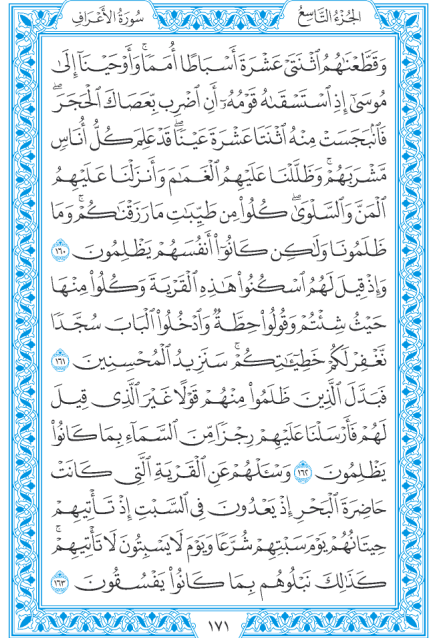 الجُزْءُ التَّاسِعُ
سُورَةُ الأَعْرَافِ
وَقَطَّعْنَٰهُمُ ٱثْنَتَىْ عَشْرَةَ أَسْبَاطًا أُمَمًا ۚ وَأَوْحَيْنَآ إِلَىٰ
مُوسَىٰٓ إِذِ ٱسْتَسْقَىٰهُ قَوْمُهُۥٓ أَنِ ٱضْرِب بِّعَصَاكَ ٱلْحَجَرَ ۖ
فَٱنۢبَجَسَتْ مِنْهُ ٱثْنَتَا عَشْرَةَ عَيْنًا ۖ قَدْ عَلِمَ كُلُّ أُنَاسٍ
مَّشْرَبَهُمْ ۚ وَظَلَّلْنَا عَلَيْهِمُ ٱلْغَمَٰمَ وَأَنزَلْنَا عَلَيْهِمُ
ٱلْمَنَّ وَٱلسَّلْوَىٰ ۖ كُلُوا۟ مِن طَيِّبَٰتِ مَا رَزَقْنَٰكُمْ ۚ وَمَا
ظَلَمُونَا وَلَٰكِن كَانُوٓا۟ أَنفُسَهُمْ يَظْلِمُونَ ١٦٠
وَإِذْ قِيلَ لَهُمُ ٱسْكُنُوا۟ هَٰذِهِ ٱلْقَرْيَةَ وَكُلُوا۟ مِنْهَا
حَيْثُ شِئْتُمْ وَقُولُوا۟ حِطَّةٌ وَٱدْخُلُوا۟ ٱلْبَابَ سُجَّدًا
نَّغْفِرْ لَكُمْ خَطِيٓـَٰٔتِكُمْ ۚ سَنَزِيدُ ٱلْمُحْسِنِينَ ١٦١
فَبَدَّلَ ٱلَّذِينَ ظَلَمُوا۟ مِنْهُمْ قَوْلًا غَيْرَ ٱلَّذِى قِيلَ
لَهُمْ فَأَرْسَلْنَا عَلَيْهِمْ رِجْزًا مِّنَ ٱلسَّمَآءِ بِمَا كَانُوا۟
يَظْلِمُونَ ١٦٢ وَسْـَٔلْهُمْ عَنِ ٱلْقَرْيَةِ ٱلَّتِى كَانَتْ
حَاضِرَةَ ٱلْبَحْرِ إِذْ يَعْدُونَ فِى ٱلسَّبْتِ إِذْ تَأْتِيهِمْ
حِيتَانُهُمْ يَوْمَ سَبْتِهِمْ شُرَّعًا وَيَوْمَ لَا يَسْبِتُونَ ۙ لَا تَأْتِيهِمْ ۚ
كَذَٰلِكَ نَبْلُوهُم بِمَا كَانُوا۟ يَفْسُقُونَ ١٦٣
١٧١